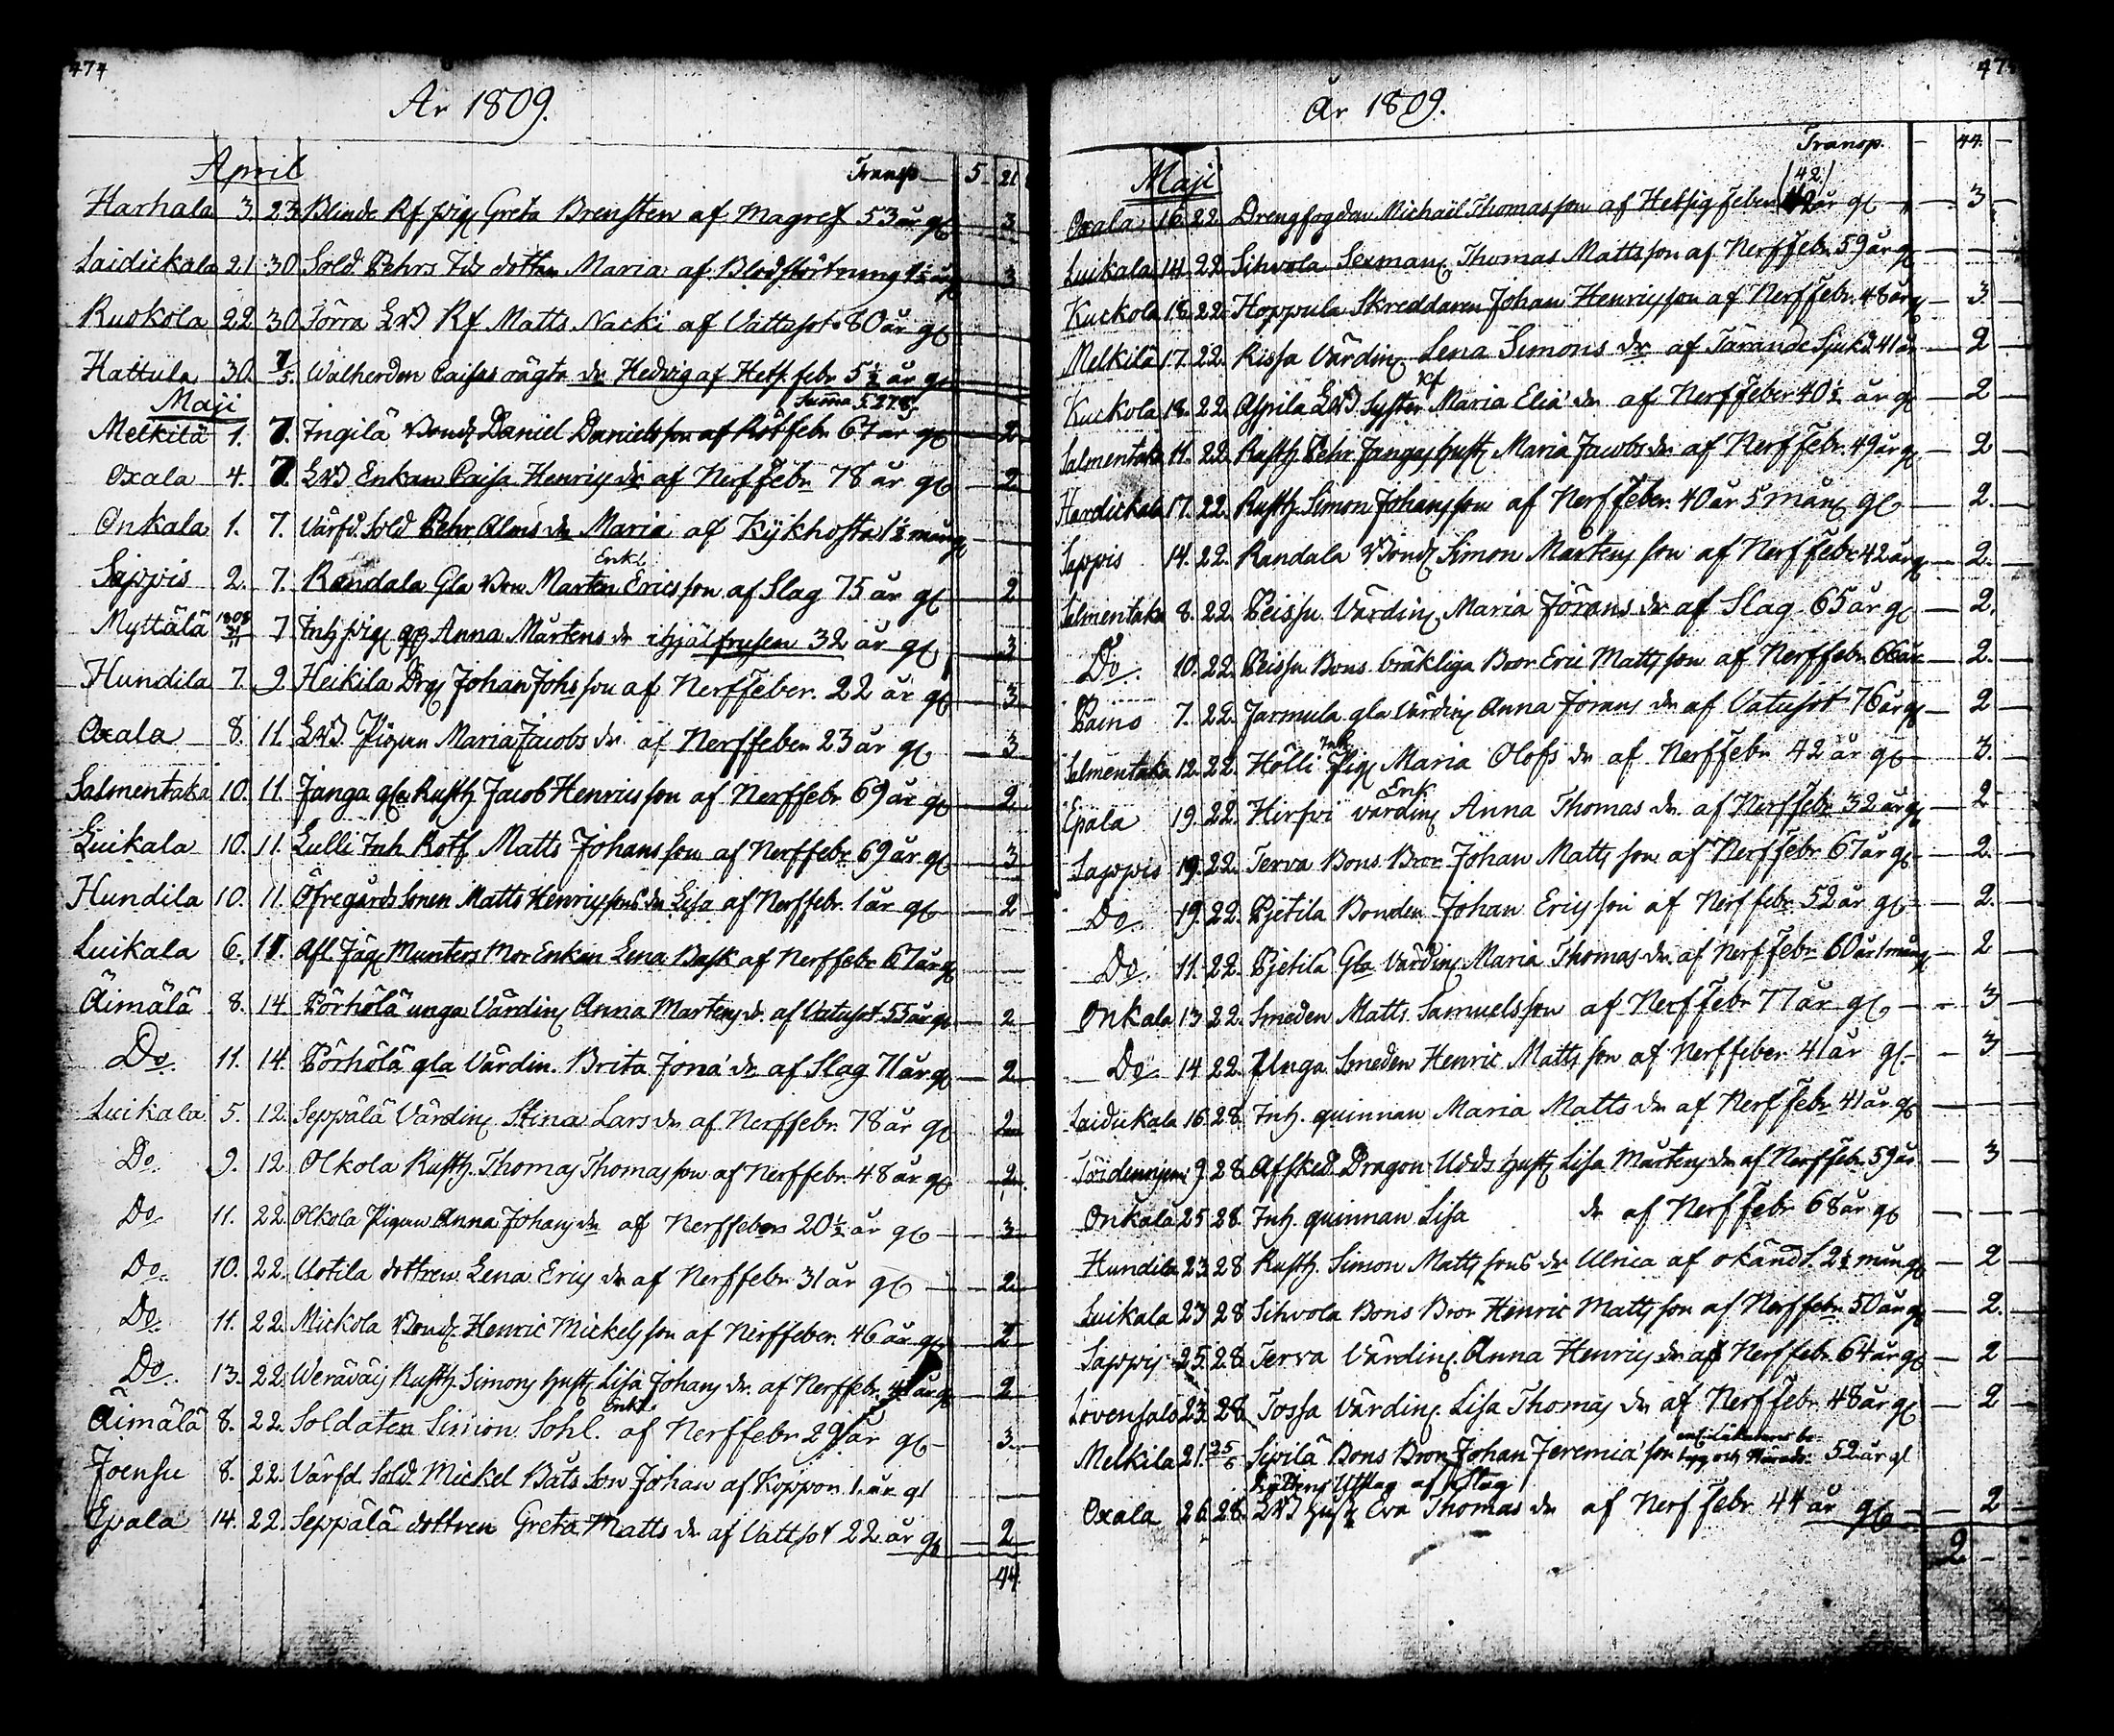 474
År 1809.
April Transp. 5 21
Harhala 3. 23. Blinde Rf pig Greta Brensten af Magref 53 år gl 3
Laidickala 21 30 Sold. Pehrs Ids dottren Maria af Blodstörtning 1½ år gl 3
Ruokola 22 30 Jörra LWD Rf Matts Nacki af Vattusot 80 år gl
Hattula 30. 7/5. Walherden Caisas oägta dr Hedvig af Hets. febr 5½ år gl
Maji Summa 5.27.8.
Melkilä 1. 7. Ingilä Bond. Daniel Danielsson af Rötfebr 67 år gl 2
Oxala 4. 7. LWD Enkan Caisa Henrics dr af Nerffebr 78 år gl 2
Onkala 1. 7. Värfd. Sold Pehr Alms dr Maria af Kykhosta 1½ mån gl
Enkl.
Sappis 2. 7. Randala Gla Bon Mårten Ericsson af Slag 75 år gl 2
Myttälä 1808 7 Inh pig Anna Mårtens dr ihjälfrusen 32 år gl 3
Hundila 7. 9. Heikila Drg Johan Johsson af Nerffeber. 22 år gl 3
Oxala 8. 11. LWD Pigan Maria Jacobs dr af Nerffeber 23 år gl 3
Salmentaka 10. 11. Janga gle Rusth Jacob Henricsson af Nerffebr 69 år gl 2
Luikala 10. 11. Lulli Inh Rotf Matts Johansson af Nerffebr 69 år gl 3
Hundila 10. 11. Öfregårds Sonen Matts Henricssons dr Lisa af Nerffebr. 1 år gl 2
Luikala 6. 11. Afl. Jäg Munters Mor Enkan Lena Bask af Nerffebr 67 år gl
Äimälä 8. 14. Pörhölä unga Värdin Anna Mårtens dr. af Vatusot 55 år gl 2
Do. 11. 14. Pörhölä gla Värdin. Brita Jona dr af Slag 71 år gl 2
Luikala 5. 12. Seppälä Värdin Stina Lars dr af Nerffebr 78 år gl 2
Do. 9. 12. Olkola Rusth. Thomas Thomasson af Nerffebr. 48 år gl 2
Do 11. 22. Olkola Pigan Anna Johans dr af Nerffebers 20½ år gl 3
Do. 10. 22. Uotila dottren Lena Erics dr af Nerffebr 31 år gl 2
Do. 11. 22. Mickola Bond. Henric Mickelsson af Nerffeber. 46 år gl 2
Do. 13. 22. Weräväis Rusth Simons hust Lisa Johans dr. af Nerffebr. år gl 2
Enkl.
Äimälä 8. 22. Soldaten Simon Sohl. af Nerffebr 29 år gl 3
Joensu 8. 22. Värfd Sold. Mickel Båts Son Johan af Koppor 1. år gl
Epala 14. 22. Seppälä dottren Greta Matts dr af Vattsot 22 år gl 2
44.
47
År 1809.
Transp. 44.
Maji (42)
Oxala 16. 22. Drengfogden Michaël Thomasson af Hetsig feber 42 år gl 3
Luikala 14. 22. Sihvola Sexman Thomas Mattsson af Nerffebr. 59 år gl
Kuckola 18. 22. Hoppula Skreddaren Johan Henricsson af Nerffebr. 48 år gl 3
Melkilä 17. 22. Rissa Värdin Lena Simons dr af Tärande Sjukd. 41 år 2
Rf
Kuckola 18. 22. Asprila LWD Syster Maria Elia dr af Nerffeber 40½ år gl 2
Salmentaka 11. 22. Rusth Pehr Jangas hust Maria Jacobs dr af Nerffebr. 49 år gl 2
Hardickala 17. 22. Rusth. Simon Johansson af Nerffeber. 40 år 5 mån gl 2.
Sappis 14. 22. Randala Bond. Simon Mårtensson af Nerffebr 42 år gl 2.
Salmentaka 8. 22. Peissu Värdin Maria Jörans dr af Slag 65 år gl 2.
Do. 10. 22. Peissu Bons bräkliga Bror Eric Mattsson af Nerffebr. 66 år 2.
Paino 7. 22. Jarmula gla Värdin Anna Jörans dr af Vatusot 76 år gl 2
Inh
Salmentaka 12. 22. Hölli Pig Maria Olofs dr af Nerffebr 42 år gl 3.
Enk
Epala 19. 22. Hirfvi Värdin Anna Thomas dr af Nerffebr 32 år gl 2
Sappis 19. 22. Terva Bons Bror Johan Mattsson af Nerffebr 67 år gl 2.
Do 19. 22. Pjetila Bonden Johan Ericsson af Nerffebr 52 år gl 2.
Do. 11. 22. Pjetila Gla Värdin Maria Thomas dr af Nerffebr 60 år 1 mån 2
Onkala 13 22. Smeden Matts Samuelsson af Nerffebr 77 år gl 3
Do 14 22. Unga Smeden Henric Mattsson af Nerffeber. 41 år gl 3
Laidickala 16. 28. Inh. quinnan Maria Matts dr af Nerffebr 41 år gl
9. 28. Afsked. Dragon Udds hust Lisa Mårtens dr af Nerffebr 59 år 3
Onkala 25 28. Inh. quinnan Lisa dr af Nerffebr 68 år gl
Hundila 23. 28. Rusth. Simon Mattssons dr Ulrica af okänd S. 2½ mån gl 2
Luikala 23 28. Sihvola Bons Bror Henric Mattsson af Nerffebr. 50 år gl 2.
Sappis 25. 28. Terva Värdin Anna Henrics dr af Nerffebr. 64 år gl 2
Lovensalo 23. 28. Tossa Värdin Lisa Thomas dr af Nerffebr 48 år gl 2
Melkila 21. 25/6 Sipilä Bons Bror Johan Jeremia son 52 år gl
af Slag
Oxala 26. 28. LWD hust Eva Thomas dr af Nerffebr 44 år gl 2
2